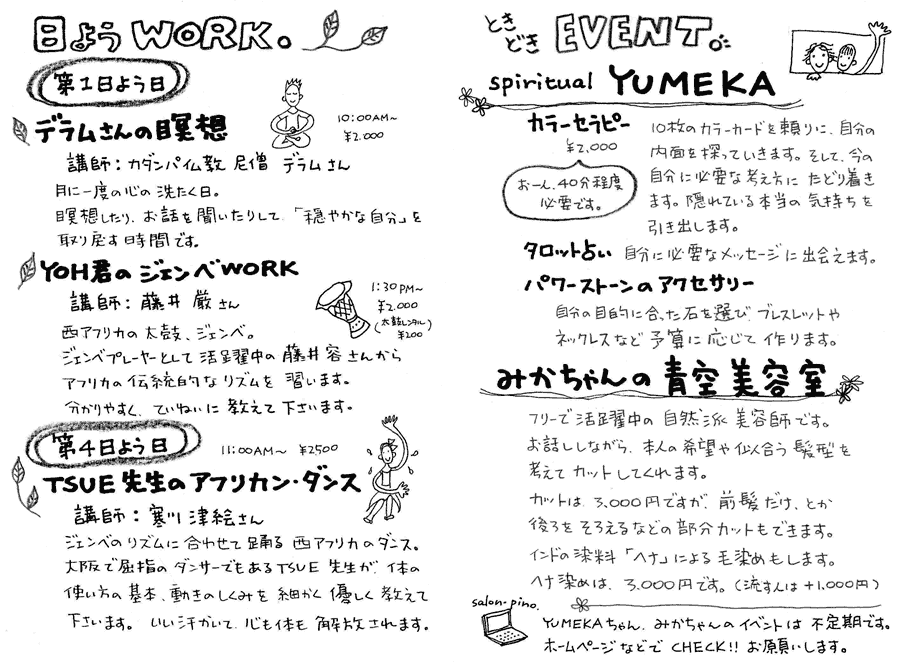 日ようWORK。
第1日よう日
デラムさんの瞑想
10:00AM~
¥2.000
講師:カダンパイム教 尼僧 デラムさん
月に一度の心の洗たく日。
瞑想したり、お話を聞いたりして、「穏やかな自分」を
取り戻す時間です。
YOH君のジェンベWORK
1:30PM~
¥2.000
(太鼓レンタル
¥200)
講師:藤井 厳さん
西アフリカの太鼓、ジェンベ。
ジェンベプレーヤーとして活躍中の藤井容さんから
アフリカの伝統的なリズムを習います。
分かりやすく、ていねいに教えて下さいます。
第4日よう日
11:00AM~ ¥2500
TSUE先生のアフリカン・ダンス
講師:寒川津絵さん
ジェンベのリズムに合わせて踊る西アフリカのダンス。
大阪で屈指のダンサーでもあるTSUE先生が、体の
使い方の基本、動きのしくみを細かく優しく教えて
下さいます。いい汗かいて、心も体も解放されます。
ときどき EVENT。
spiritual YUMEKA
カラーセラピー
¥2,000
おーん、40分程度
必要です。
10枚のカラーカードを頼りに、自分の
内面を探っていきます。そして、今の
自分に必要な考え方にたどり着き
ます。隠れている本当の気持ちを
引き出します。
タロット占い 自分に必要なメッセージに出会えます。
パワーストーンのアクセサリー
自分の目的に合った石を選び、ブレスレットや
ネックレスなど予算に応じて作ります。
みかちゃんの青空美容室
フリーで活躍中の自然派美容師です。
お話ししながら、本人の希望や似合う髪型を
考えてカットしてくれます。
カットは、3,000円ですが、前髪だけ、とか
後ろをそろえるなどの部分カットもできます。
インドの染料「ヘナ」による毛染めもします。
ヘナ染めは、3,000円です。(流す人は+1,000円)
salon-pino.
YUMEKAちゃん、みかちゃんのイベントは不定期です。
ホームページなどでCHECK!!お願いします。